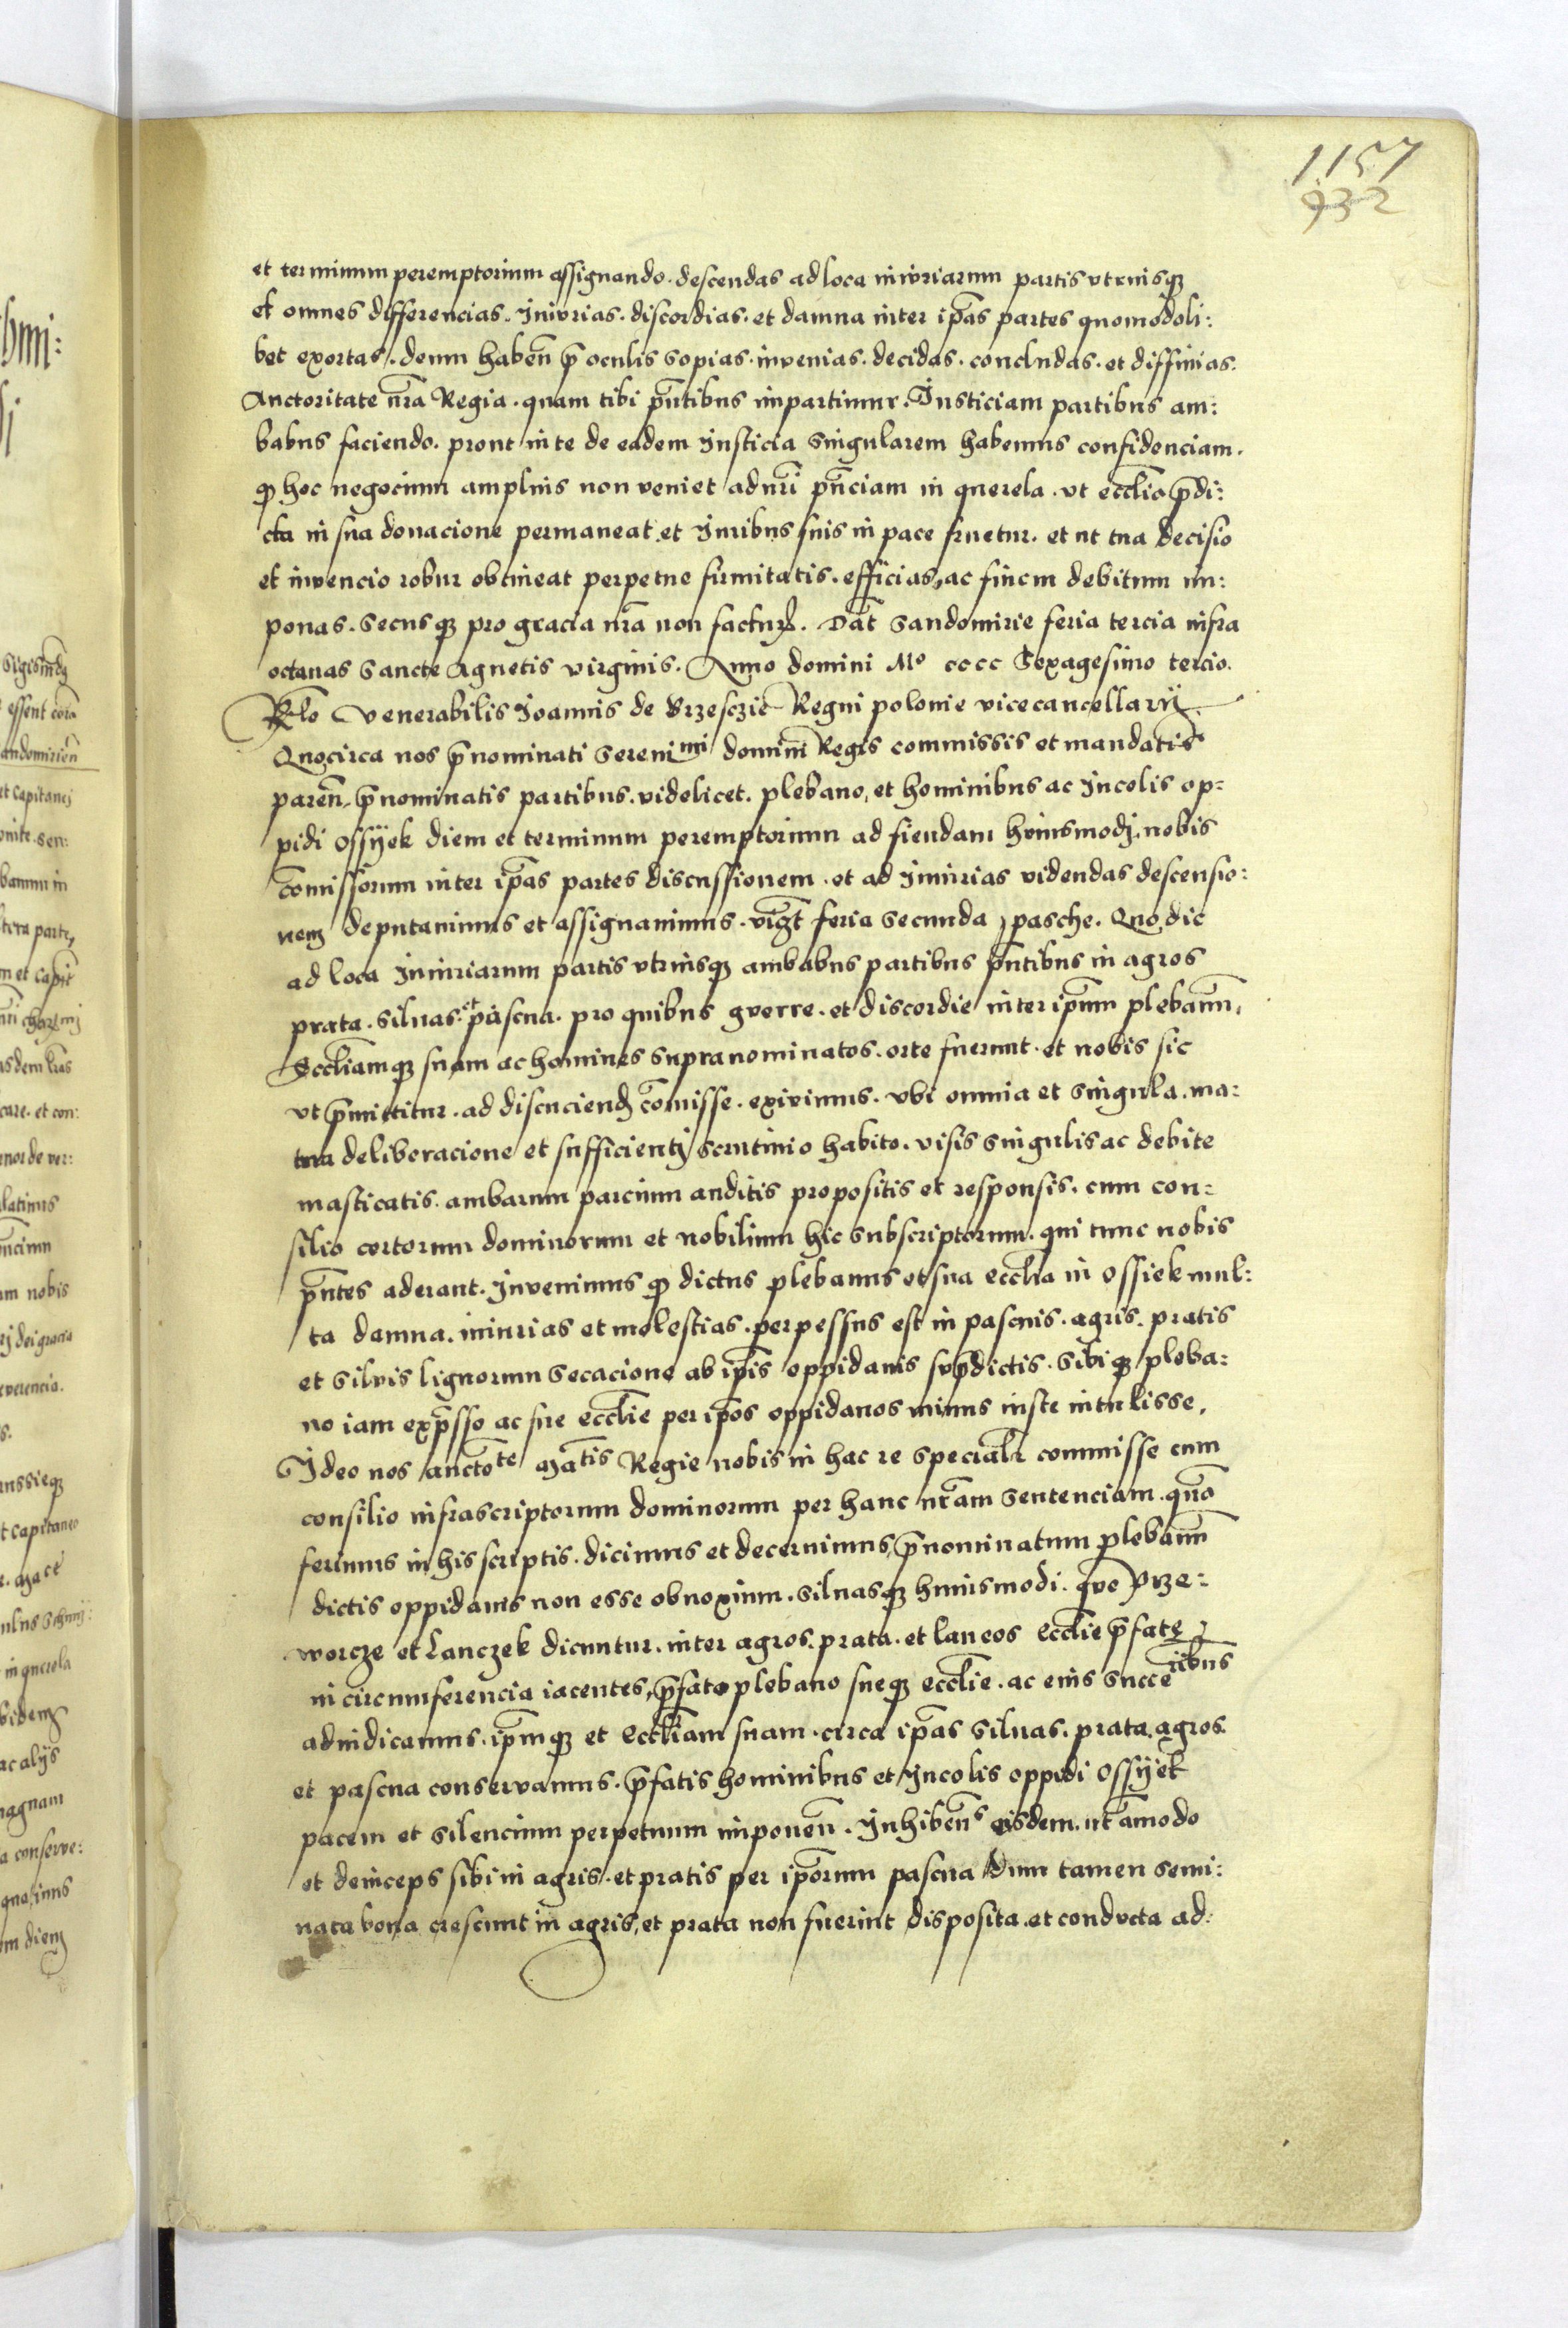 1157
932
et terminum peremptorium assignando. descendas ad loca iniuriarum partis utriusq3
et omnes differencias. Iniurias. discordias. et damna inter ip̃as partes quomodoli:
bet exortas. deum habeñ p̃ oculis sopias. invenias. decidas. concludas. et diffinias.
Auctoritate nr̃a Regia. quam tibi p̃ntibus impartimur. Iusticiam partibus am:
babus faciendo. prout in te de eadem Iusticia singularem habemus confidenciam.
q̃ hoc negocium amplius non veniet ad nr̃i p̃nciam in querela. ut eccl̃ia p̃di:
cta in sua donacione permaneat. et Iuribus suis in pace fruetur. et ut tua decisio
et invencio robur obtineat perpetue firmitatis. efficias, ac finem debitum im:
ponas. secusq3 pro gracia nr̃a non factur̃. Dat̃ Sandomirie feria tercia infra
octauas Sancte Agnetis virginis. Anno domini Mº cccc Sexagesimo tercio.
Rl̃o Venerabilis Ioannis de Brzesczie Regni polonie vicecancellarÿ.
Quocirca nos p̃nominati sereni mi domini Regis commissis et mandatis
pareñ, p̃nominatis partibus. videlicet. plebano, et hominibus ac Incolis op:
pidi Ossÿek diem et terminum peremptorium ad fiendam huiusmodj. nobis
com̃issorum inter ip̃as partes discussionem. et ad Iniurias videndas descensio:
nem deputauimus et assignauimus. viz̃t feria secunda pasche. Quo die
ad loca Iniuriarum partis utriusq3 ambabus partibus p̃ntibus in agros
prata. siluas. et pascua. pro quibus gverre. et discordie inter ip̃um plebanũ,
Eccl̃iamq3 suam ac homines supranominatos. orte fuerunt. et nobis sic
ut p̃mittitur. ad discuciend̃ com̃isse. exivimus. ubi omnia et singula. ma:
tura deliberacione et sufficientj scrutinio habito. visis singulis ac debite
masticatis. ambarum parcium auditis propositis et responsis. cum con:
silio certorum dominorum et nobilium hic subscriptorum. qui tunc nobis
p̃ntes aderant. Invenimus q̃ dictus plebanus et sua eccl̃ia in Ossiek mul:
ta damna. iniurias et molestias. perpessus est in pascuis. agris. pratis
et silvis lignorum secacione ab ip̃is oppidanis sup̃dictis. sibiq3 pleba:
no iam exp̃sso ac sue eccl̃ie per ip̃os oppidanos minus iuste intulisse.
Ideo nos aucto te Ma tis Regie nobis in hac re specialr̃ commisse cum
consilio infrascriptorum dominorum per hanc nr̃am sentenciam. quã
ferimus in his scriptis. dicimus et decernimus, p̃nominatum plebanũ
dictis oppidanis non esse obnoxium. siluasq3 huiusmodi. que Prze:
worcze et Lanczek dicuntur. inter agros. prata. et laneos eccl̃ie p̃fatę
in circumferencia iacentes, p̃fato plebano sueq3 eccl̃ie. ac eius succe ribus
adiudicamus. ip̃mq3 et eccl̃iam suam. circa ip̃as siluas. prata. agros.
et pascua conservamus. p̃fatis hominibus et Incolis oppidi Ossÿek
pacem et silencium perpetuum imponeñ. Inhibeñs eisdem. ut ãmodo
et deinceps sibi in agris. et pratis per ip̃orum pascua dum tamen semi:
nata bona crescunt in agris, et prata non fuerint disposita. et conducta ad: